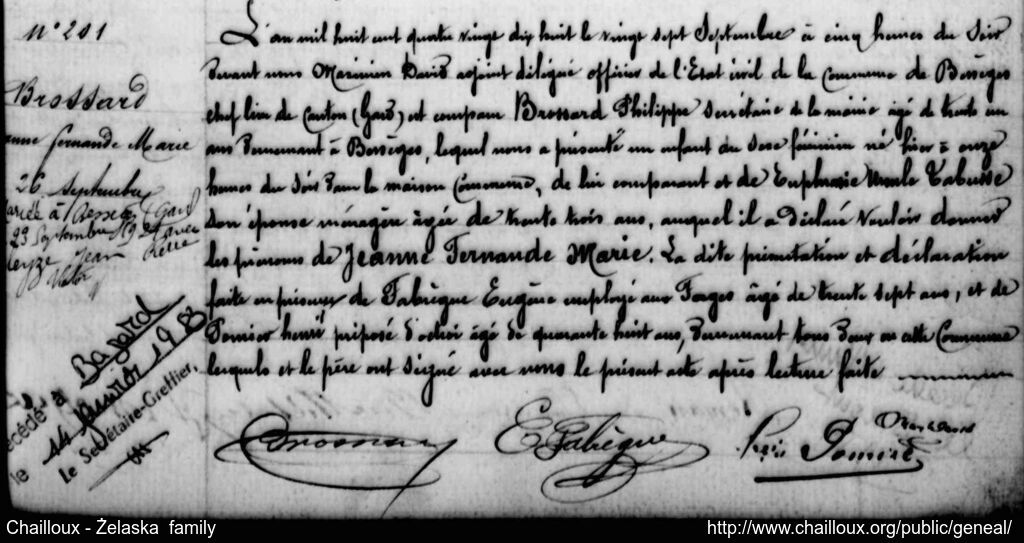 N° 201
Brossard
Jeanne Fernande Marie
26 Septembre
Mariée à Bessèges (Gard)
23 Septembre 19 avec
Jean Pierre
Victor
Décédé à Bagard
le 14 Janvier 198
Le Secrétaire-Greffier,
L'an mil huit cent quatre vingt dix huit le vingt sept Septembre à cinq heures du Soir
devant nous Maximien David adjoint délégué officier de l'Etat civil de la Commune de Bessèges
chef lieu de Canton (Gard) est comparu Brossard Philippe Secrétaire de la mairie âgé de trente un
ans demeurant à Bessèges, lequel nous a présenté un enfant du Sexe féminin né hier à onze
heures du Soir dans la maison Commune, de lui comparant et de Euphrasie Ursule Tabusse
Son épouse ménagère âgée de trente trois ans, auquel il a déclaré Vouloir donner
les prénoms de Jeanne Fernande Marie. La dite présentation et déclaration
faite en présence de Fabrègue Eugène employé aux Forges âgé de trente sept ans, et de
Pomier henri, préposé d'octroi âgé de quarante huit ans, demeurant tous deux en cette Commune
lesquels et le père ont Signé avec nous le présent acte après lecture faite
Brossard
E Fabrègue
Pomier
Chailloux - Żelaska family
http://www.chailloux.org/public/geneal/